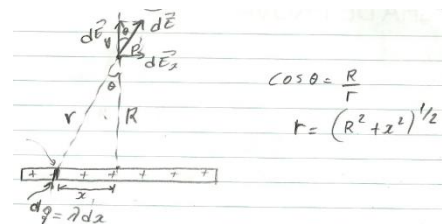 dE⃗y
dE⃗
θ
P
dE⃗x
θ
r
R
cosθ = R/r
r = (R² + x²)^1/2
+ + + + + + +
x
dq = λdx